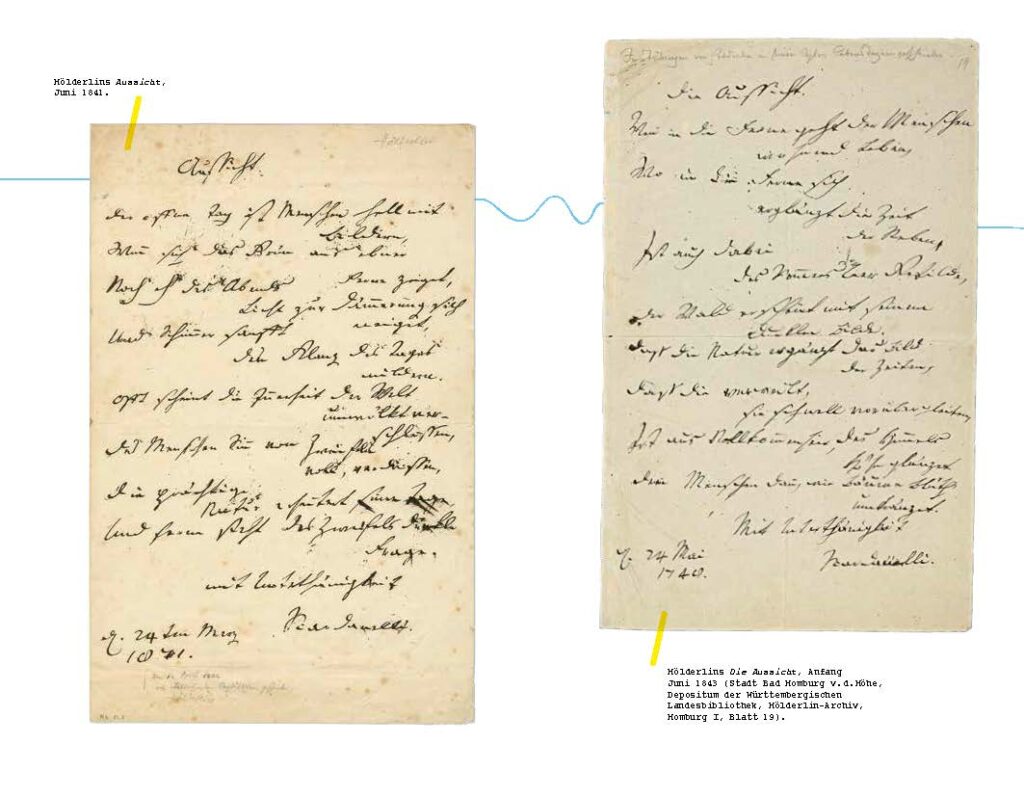 Hölderlins Aussicht,
Juni 1841.
Aussicht.
Der offne Tag ist Menschen hell mit
Bildern,
Wenn sich das Grün aus ebner
Ferne zeiget,
Noch eh' des Abends
Licht zur Dämmerung sich
neiget,
Und Schimmer sanft
den Klang des Tages
mildern.
Oft scheint die Innerheit der Welt
umwölkt ver-
schlossen,
Des Menschen Sinn von Zweifeln
voll, verdrossen,
Die prächtige
Natur erheitert seine Tage
Und ferne steht des Zweifels dunkle
Frage.
mit Unterthänigkeit
Scardanelli.
d. 24 ten Merz
1871.
Die Aussicht.
Wenn in die Ferne geht der Menschen
wohnend Leben,
Wo in die Ferne sich
erglänzt die Zeit
der Reben,
Ist auch dabei
des Sommers leer Gefilde,
Der Wald erscheint mit seinem
dunklen Bilde.
Daß die Natur ergänzt das Bild
der Zeiten,
Daß die verweilt,
sie schnell vorübergleiten,
Ist aus Vollkommenheit, des Himmels
Höhe glänzet
Den Menschen dann, wie Bäume Blüth'
umkränzet.
Mit Unterthänigkeit
Scardanelli.
d. 24 Mai
1748.
Hölderlins Die Aussicht, Anfang
Juni 1843 (Stadt Bad Homburg v.d.Höhe,
Depositum der Württembergischen
Landesbibliothek, Hölderlin-Archiv,
Homburg I, Blatt 19).